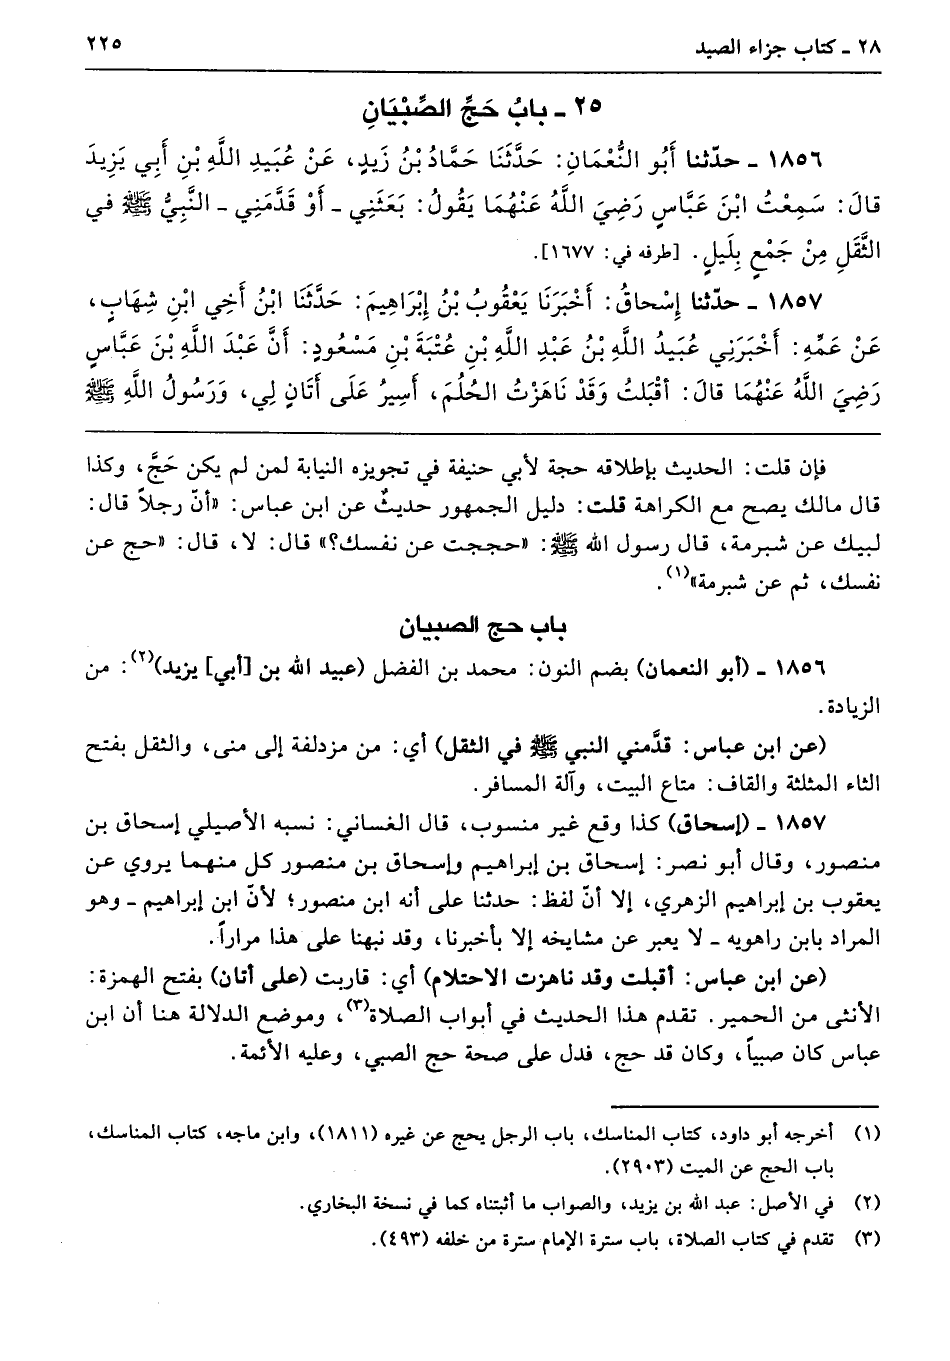 ٢٨ ـ كتاب جزاء الصيد
٢٢٥
٢٥ ـ بابُ حَجِّ الصِّبْيَانِ
١٨٥٦ ـ حدّثنا أَبُو النُّعْمَانِ: حَدَّثَنَا حَمَّادُ بْنُ زَيدٍ، عَنْ عُبَيدِ اللَّهِ بْنِ أَبِي يَزِيدَ
قالَ: سَمِعْتُ ابْنَ عَبَّاسٍ رَضِيَ اللَّهُ عَنْهُمَا يَقُولُ: بَعَثَنِي ـ أَوْ قَدَّمَنِي ـ النَّبِيُّ ﷺ في
الثَّقَلِ مِنْ جَمْعٍ بِلَيلٍ. [طرفه في: ١٦٧٧].
١٨٥٧ ـ حدّثنا إِسْحاقُ: أَخْبَرَنَا يَعْقُوبُ بْنُ إِبْرَاهِيمَ: حَدَّثَنَا ابْنُ أَخِي ابْنِ شِهَابٍ،
عَنْ عَمِّهِ: أَخْبَرَنِي عُبَيدُ اللَّهِ بْنُ عَبْدِ اللَّهِ بْنِ عُتْبَةَ بْنِ مَسْعُودٍ: أَنَّ عَبْدَ اللَّهِ بْنَ عَبَّاسٍ
رَضِيَ اللَّهُ عَنْهُمَا قالَ: أَقْبَلتُ وَقَدْ نَاهَزْتُ الحُلُمَ، أَسِيرُ عَلَى أَتَانٍ لِي، وَرَسُولُ اللَّهِ ﷺ
فإن قلت: الحديث بإطلاقه حجة لأبي حنيفة في تجويزه النيابة لمن لم يكن حَجَّ، وكذا
قال مالك يصح مع الكراهة قلت: دليل الجمهور حديثٌ عن ابن عباس: «أنّ رجلاً قال:
لبيك عن شبرمة، قال رسول الله ﷺ: «حججت عن نفسك؟» قال: لا، قال: «حج عن
نفسك، ثم عن شبرمة»(١).
باب حج الصبيان
١٨٥٦ ـ (أبو النعمان) بضم النون: محمد بن الفضل (عبيد الله بن [أبي] يزيد)(٢): من
الزيادة.
(عن ابن عباس: قدَّمني النبي ﷺ في الثقل) أي: من مزدلفة إلى منى، والثقل بفتح
الثاء المثلثة والقاف: متاع البيت، وآلة المسافر.
١٨٥٧ ـ (إسحاق) كذا وقع غير منسوب، قال الغساني: نسبه الأصيلي إسحاق بن
منصور، وقال أبو نصر: إسحاق بن إبراهيم وإسحاق بن منصور كل منهما يروي عن
يعقوب بن إبراهيم الزهري، إلا أنّ لفظ: حدثنا على أنه ابن منصور؛ لأنّ ابن إبراهيم ـ وهو
المراد بابن راهويه ـ لا يعبر عن مشايخه إلا بأخبرنا، وقد نبهنا على هذا مراراً.
(عن ابن عباس: أقبلت وقد ناهزت الاحتلام) أي: قاربت (على أتان) بفتح الهمزة:
الأنثى من الحمير. تقدم هذا الحديث في أبواب الصلاة(٣)، وموضع الدلالة هنا أن ابن
عباس كان صبياً، وكان قد حج، فدل على صحة حج الصبي، وعليه الأئمة.
(١) أخرجه أبو داود، كتاب المناسك، باب الرجل يحج عن غيره (١٨١١)، وابن ماجه، كتاب المناسك،
باب الحج عن الميت (٢٩٠٣).
(٢) في الأصل: عبد الله بن يزيد، والصواب ما أثبتناه كما في نسخة البخاري.
(٣) تقدم في كتاب الصلاة، باب سترة الإمام سترة من خلفه (٤٩٣).